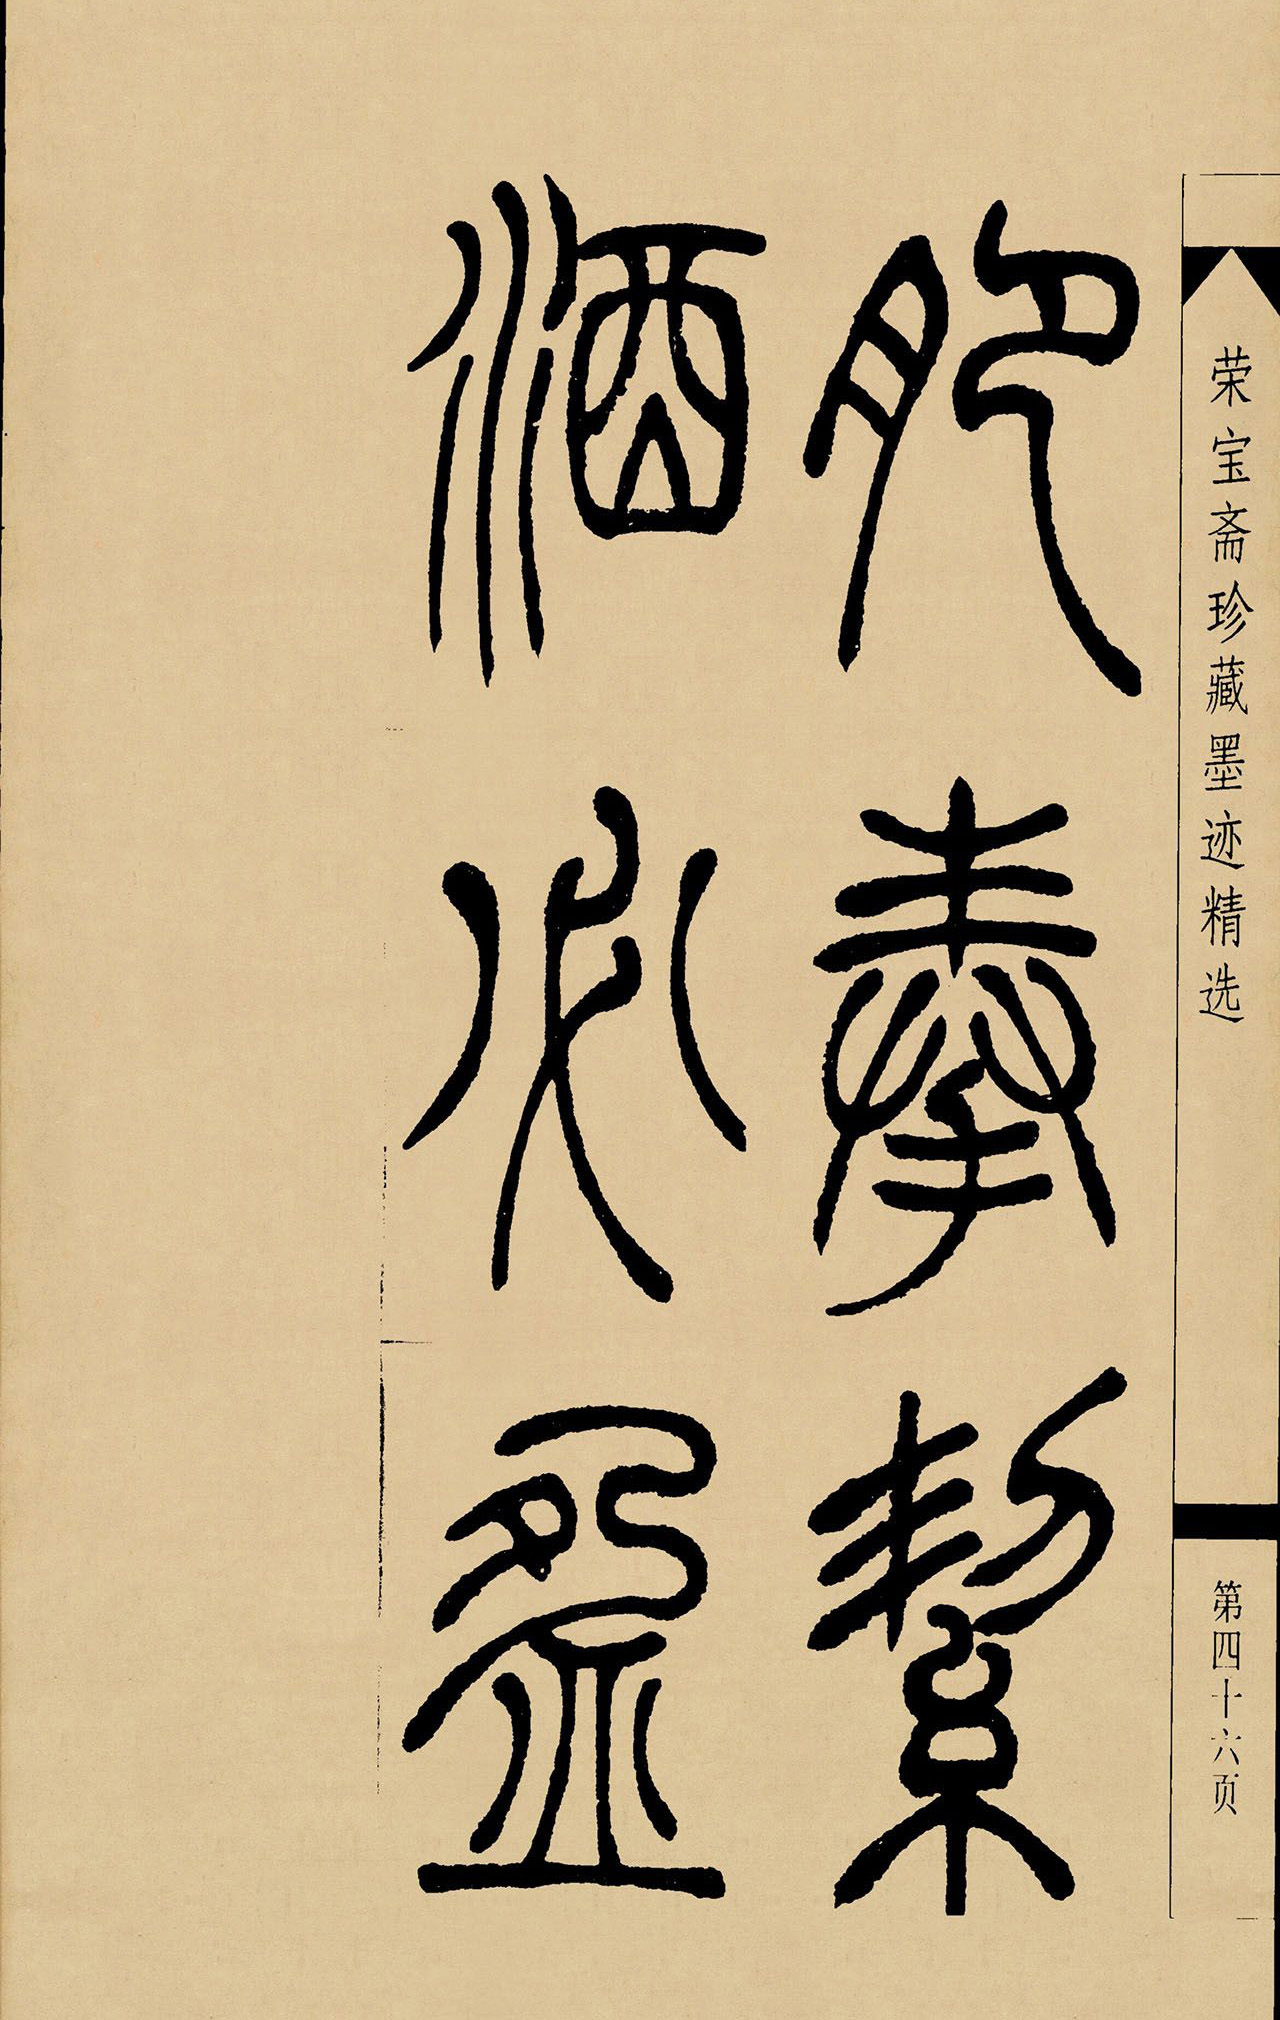 荣宝斋珍藏墨迹精选
第四十六页
肥奉絜
酒必盈